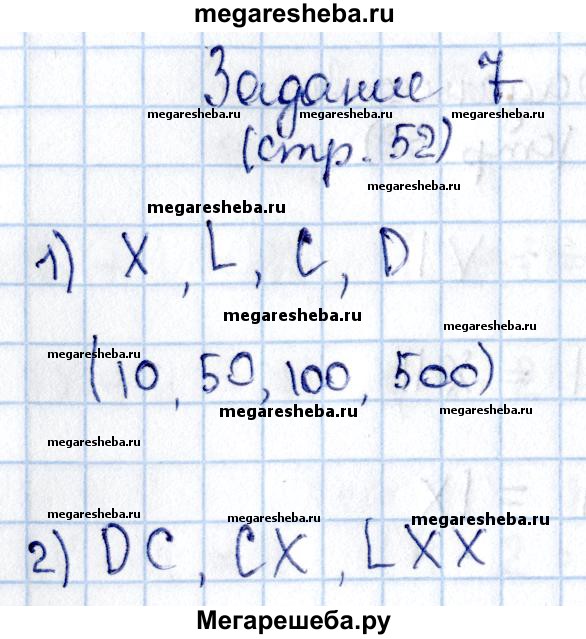 megaresheba.ru
Задание 7
megaresheba.ru megaresheba.ru megaresheba.ru
(стр. 52)
megaresheba.ru
megaresheba.ru
1) X, L, C, D
megaresheba.ru
megaresheba.ru
megaresheba.ru
(10, 50, 100, 500)
megaresheba.ru megaresheba.ru
megaresheba.ru
megaresheba.ru megaresheba.ru megaresheba.ru
2) DC, CX, LXX
Мегарешеба.ру